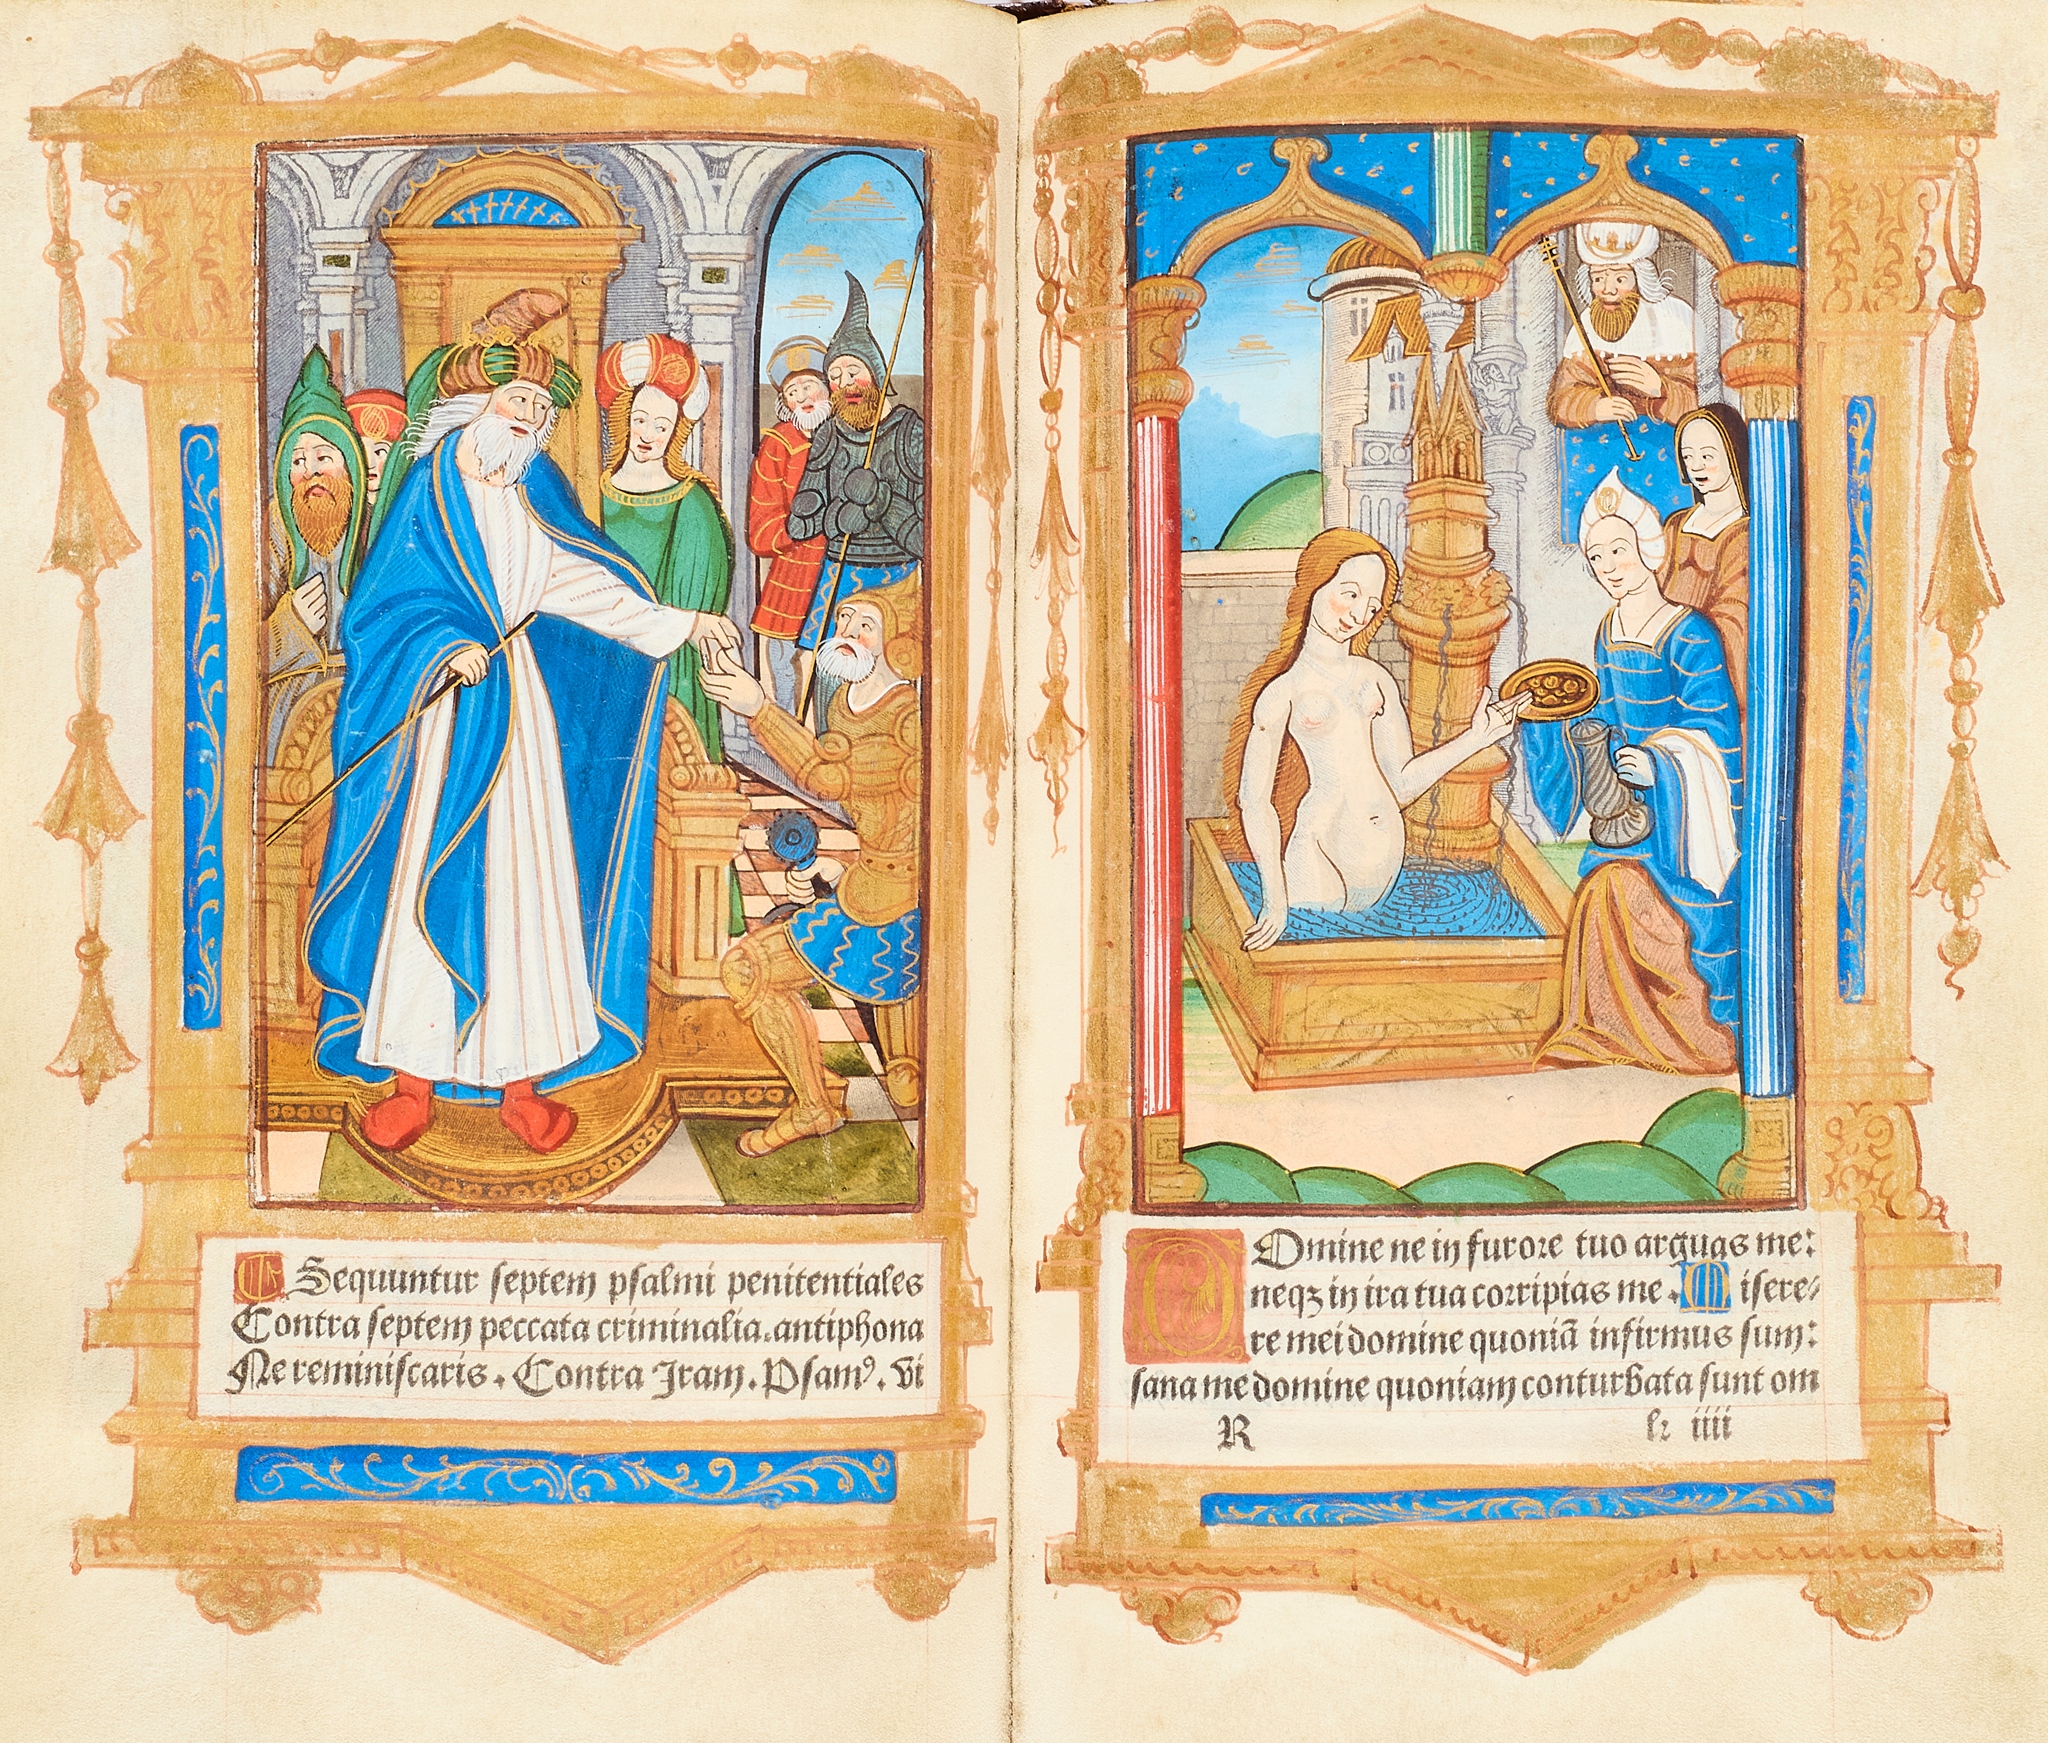 Sequuntur septem psalmi penitentiales
Contra septem peccata criminalia. antiphona
Ne reminiscaris. Contra Iram. Psamꝰ. vi
DOmine ne in furore tuo arguas me:
neqꝫ in ira tua corripias me. Misere⸗
re mei domine quoniã infirmus sum:
sana me domine quoniam conturbata sunt om
R iiii